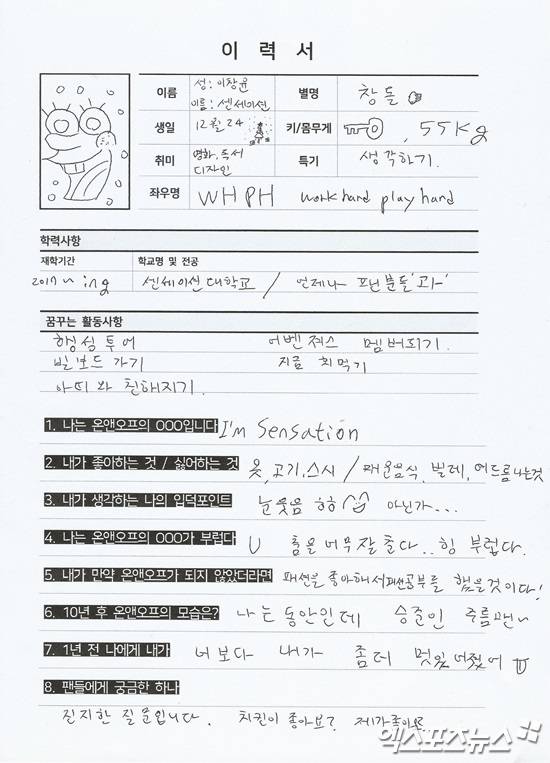 이 력 서
이름 성: 이창윤 이름: 센세이션 별명 창돌
생일 12월 24 키/몸무게 , 55kg
취미 영화, 독서 디자인 특기 생각하기.
좌우명 WHPH work hard play hard
학력사항
재학기간 학교명 및 전공
2017~ing 센세이션대학교 / 언제나 팬분들'과'
꿈꾸는 활동사항
행성투어 어벤져스 멤버되기.
빌보드 가기 지금 치먹기
아띠와 친해지기.
1. 나는 온앤오프의 OOO입니다 I'm Sensation
2. 내가 좋아하는 것 / 싫어하는 것 옷, 고기, 스시 / 매운음식, 벌레, 여드름나는것
3. 내가 생각하는 나의 입덕포인트 눈웃음 하하 아닌가...
4. 나는 온앤오프의 OOO가 부럽다 U 춤을 너무 잘 춘다.. 힝 부럽다.
5. 내가 만약 온앤오프가 되지 않았더라면 패션을 좋아해서 패션공부를 했을것이다!
6. 10년 후 온앤오프의 모습은? 나는 동안인데 승준인 주름팬~
7. 1년 전 나에게 내가 너보다 내가 좀더 멋있어졌어 ㅠ
8. 팬들에게 궁금한 하나
진지한 질문입니다. 치킨이 좋아요? 제가좋아요
엑스포츠뉴스